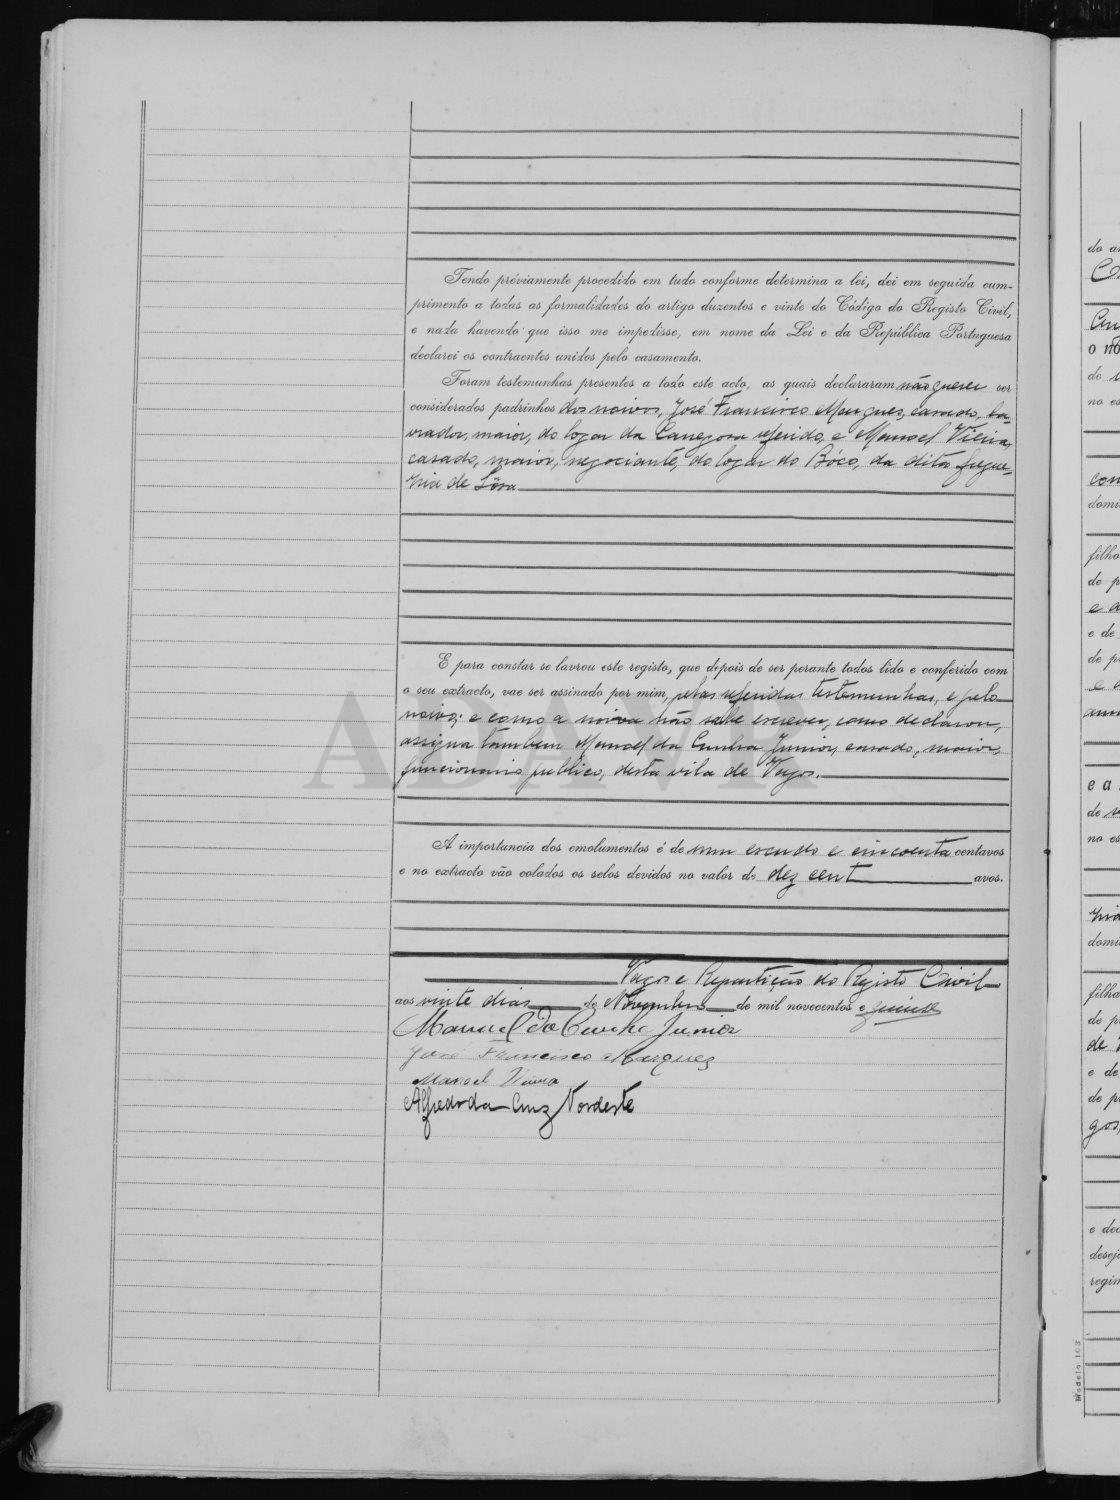 Tendo préviamente procedido em tudo conforme determina a lei, dei em seguida cum-
primento a todas as formalidades do artigo duzentos e vinte do Código do Registo Civil,
e nada havendo que isso me impedisse, em nome da Lei e da República Portuguesa
declarei os contraentes unidos pelo casamento.
Foram testemunhas presentes a todo este acto, as quais declararam não querer ser
considerados padrinhos dos noivos, José Francisco Marques, casado, la-
vrador, maior, do logar da Canegosa referido, e Manoel Vieira,
casado, maior, negociante, do logar do Bóco, da dita fregue-
sia de Sôsa
E para constar se lavrou este registo, que depois de ser perante todos lido e conferido com
o seu extracto, vae ser assinado por mim, pelas referidas testemunhas, e pelo
noivo; e como a noiva não sabe escrever, como declarou,
assigna tambem Manoel da Cunha Junior, casado, maior,
funcionario publico, desta vila de Vagos.
A importancia dos emolumentos é de um escudo e cincoenta centavos
e no extracto vão colados os selos devidos no valor de dez cent avos.
Vagos e Repartição do Registo Civil
aos vinte dias de Novembro de mil novecentos e quinze
Manuel da Cunha Junior
José Francisco Marques
Manoel Vieira
Alfredo da Cruz Nordeste
ADAVR
do
filha
do
e de
Modelo 103